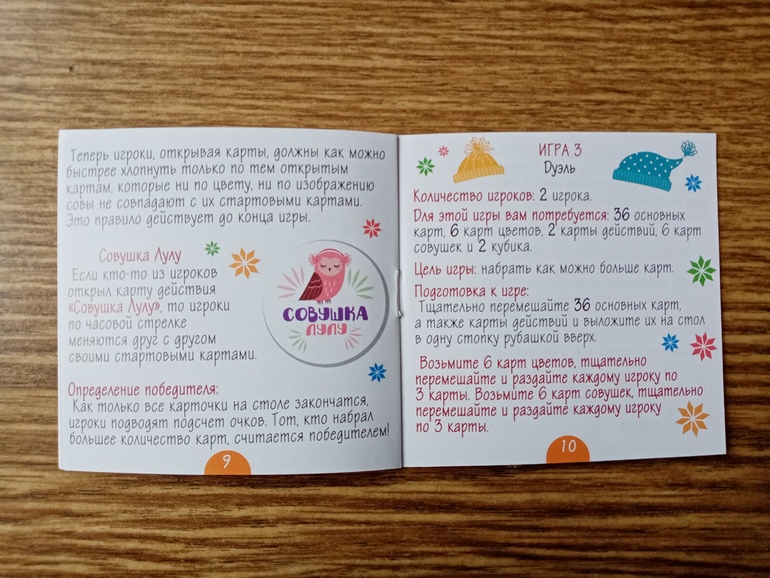 Теперь игроки, открывая карты, должны как можно
быстрее хлопнуть только по тем открытым
картам, которые ни по цвету, ни по изображению
совы не совпадают с их стартовыми картами.
Это правило действует до конца игры.
Совушка Лулу
Если кто-то из игроков
открыл карту действия
«Совушка Лулу», то игроки
по часовой стрелке
меняются друг с другом
своими стартовыми картами.
СОВУШКА
ЛУЛУ
Определение победителя:
Как только все карточки на столе закончатся,
игроки подводят подсчет очков. Тот, кто набрал
большее количество карт, считается победителем!
9
ИГРА 3
Дуэль
Количество игроков: 2 игрока.
Для этой игры вам потребуется: 36 основных
карт, 6 карт цветов, 2 карты действий, 6 карт
совушек и 2 кубика.
Цель игры: набрать как можно больше карт.
Подготовка к игре:
Тщательно перемешайте 36 основных карт,
а также карты действий и выложите их на стол
в одну стопку рубашкой вверх.
Возьмите 6 карт цветов, тщательно
перемешайте и раздайте каждому игроку по
3 карты. Возьмите 6 карт совушек, тщательно
перемешайте и раздайте каждому игроку
по 3 карты.
10